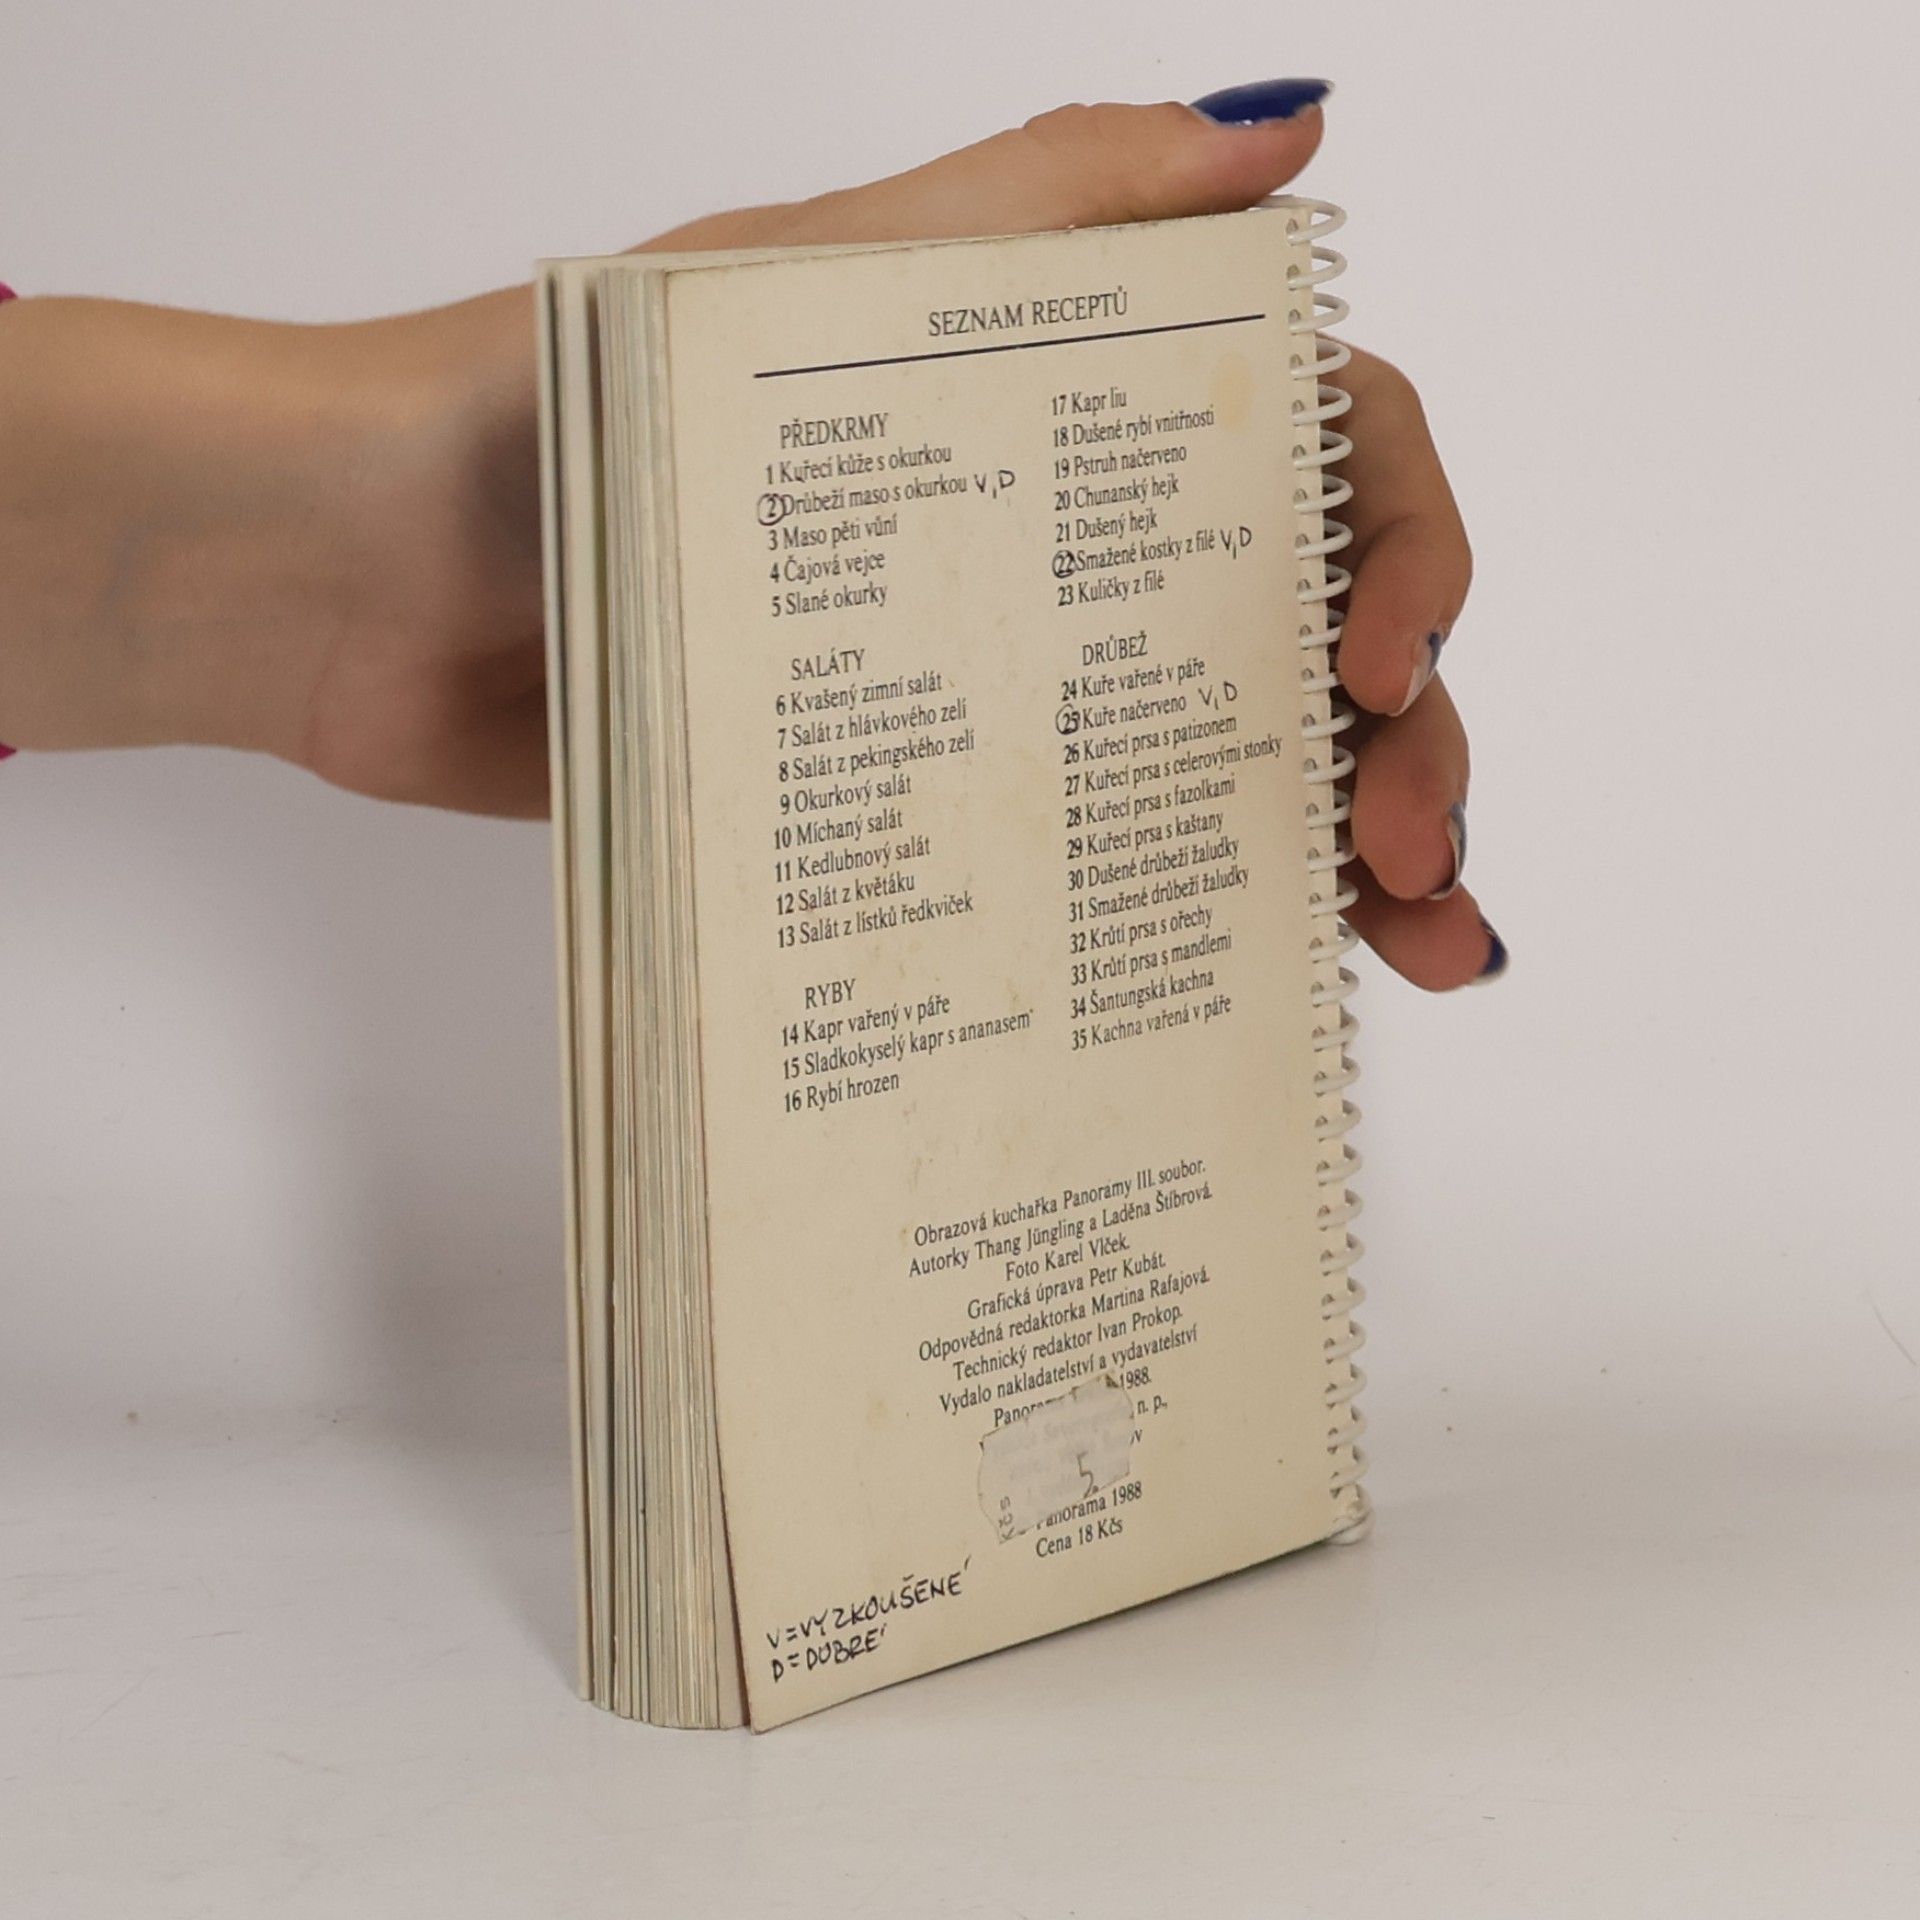 SEZNAM RECEPTŮ
PŘEDKRMY
1 Kuřecí kůže s okurkou
2 Drůbeží maso s okurkou V,D
3 Maso pěti vůní
4 Čajová vejce
5 Slané okurky
SALÁTY
6 Kvašený zimní salát
7 Salát z hlávkového zelí
8 Salát z pekingského zelí
9 Okurkový salát
10 Míchaný salát
11 Kedlubnový salát
12 Salát z květáku
13 Salát z lístků ředkviček
RYBY
14 Kapr vařený v páře
15 Sladkokyselý kapr s ananasem
16 Rybí hrozen
17 Kapr liu
18 Dušené rybí vnitřnosti
19 Pstruh načerveno
20 Chunanský hejk
21 Dušený hejk
22 Smažené kostky z filé V,D
23 Kuličky z filé
DRŮBEŽ
24 Kuře vařené v páře
25 Kuře načerveno V,D
26 Kuřecí prsa s patizonem
27 Kuřecí prsa s celerovými stonky
28 Kuřecí prsa s fazolkami
29 Kuřecí prsa s kaštany
30 Dušené drůbeží žaludky
31 Smažené drůbeží žaludky
32 Krůtí prsa s ořechy
33 Krůtí prsa s mandlemi
34 Šantungská kachna
35 Kachna vařená v páře
Obrazová kuchařka Panorámy III. soubor.
Autorky Thang Jüngling a Laděna Štíbrová.
Foto Karel Vlček.
Grafická úprava Petr Kubát.
Odpovědná redaktorka Martina Rafajová.
Technický redaktor Ivan Prokop.
Vydalo nakladatelství a vydavatelství
1988.
n. p.,
5
Kčs
Panorama 1988
Cena 18 Kčs
V=VYZKOUŠENÉ
D=DOBRÉ